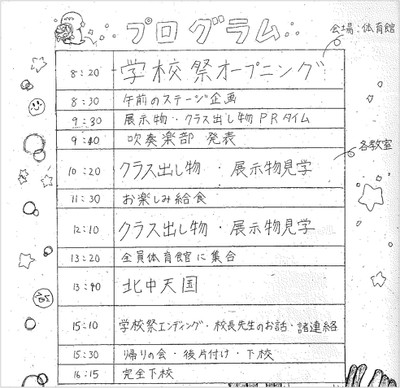 プログラム
会場:体育館
8:20 学校祭オープニング
8:30 午前のステージ企画
9:30 展示物・クラス出し物PRタイム
9:40 吹奏楽部 発表
各教室
10:20 クラス出し物・展示物見学
11:30 お楽しみ給食
12:10 クラス出し物・展示物見学
13:20 全員体育館に集合
13:40 北中天国
15:10 学校祭エンディング・校長先生のお話・諸連絡
15:30 帰りの会・後片付け・下校
16:15 完全下校